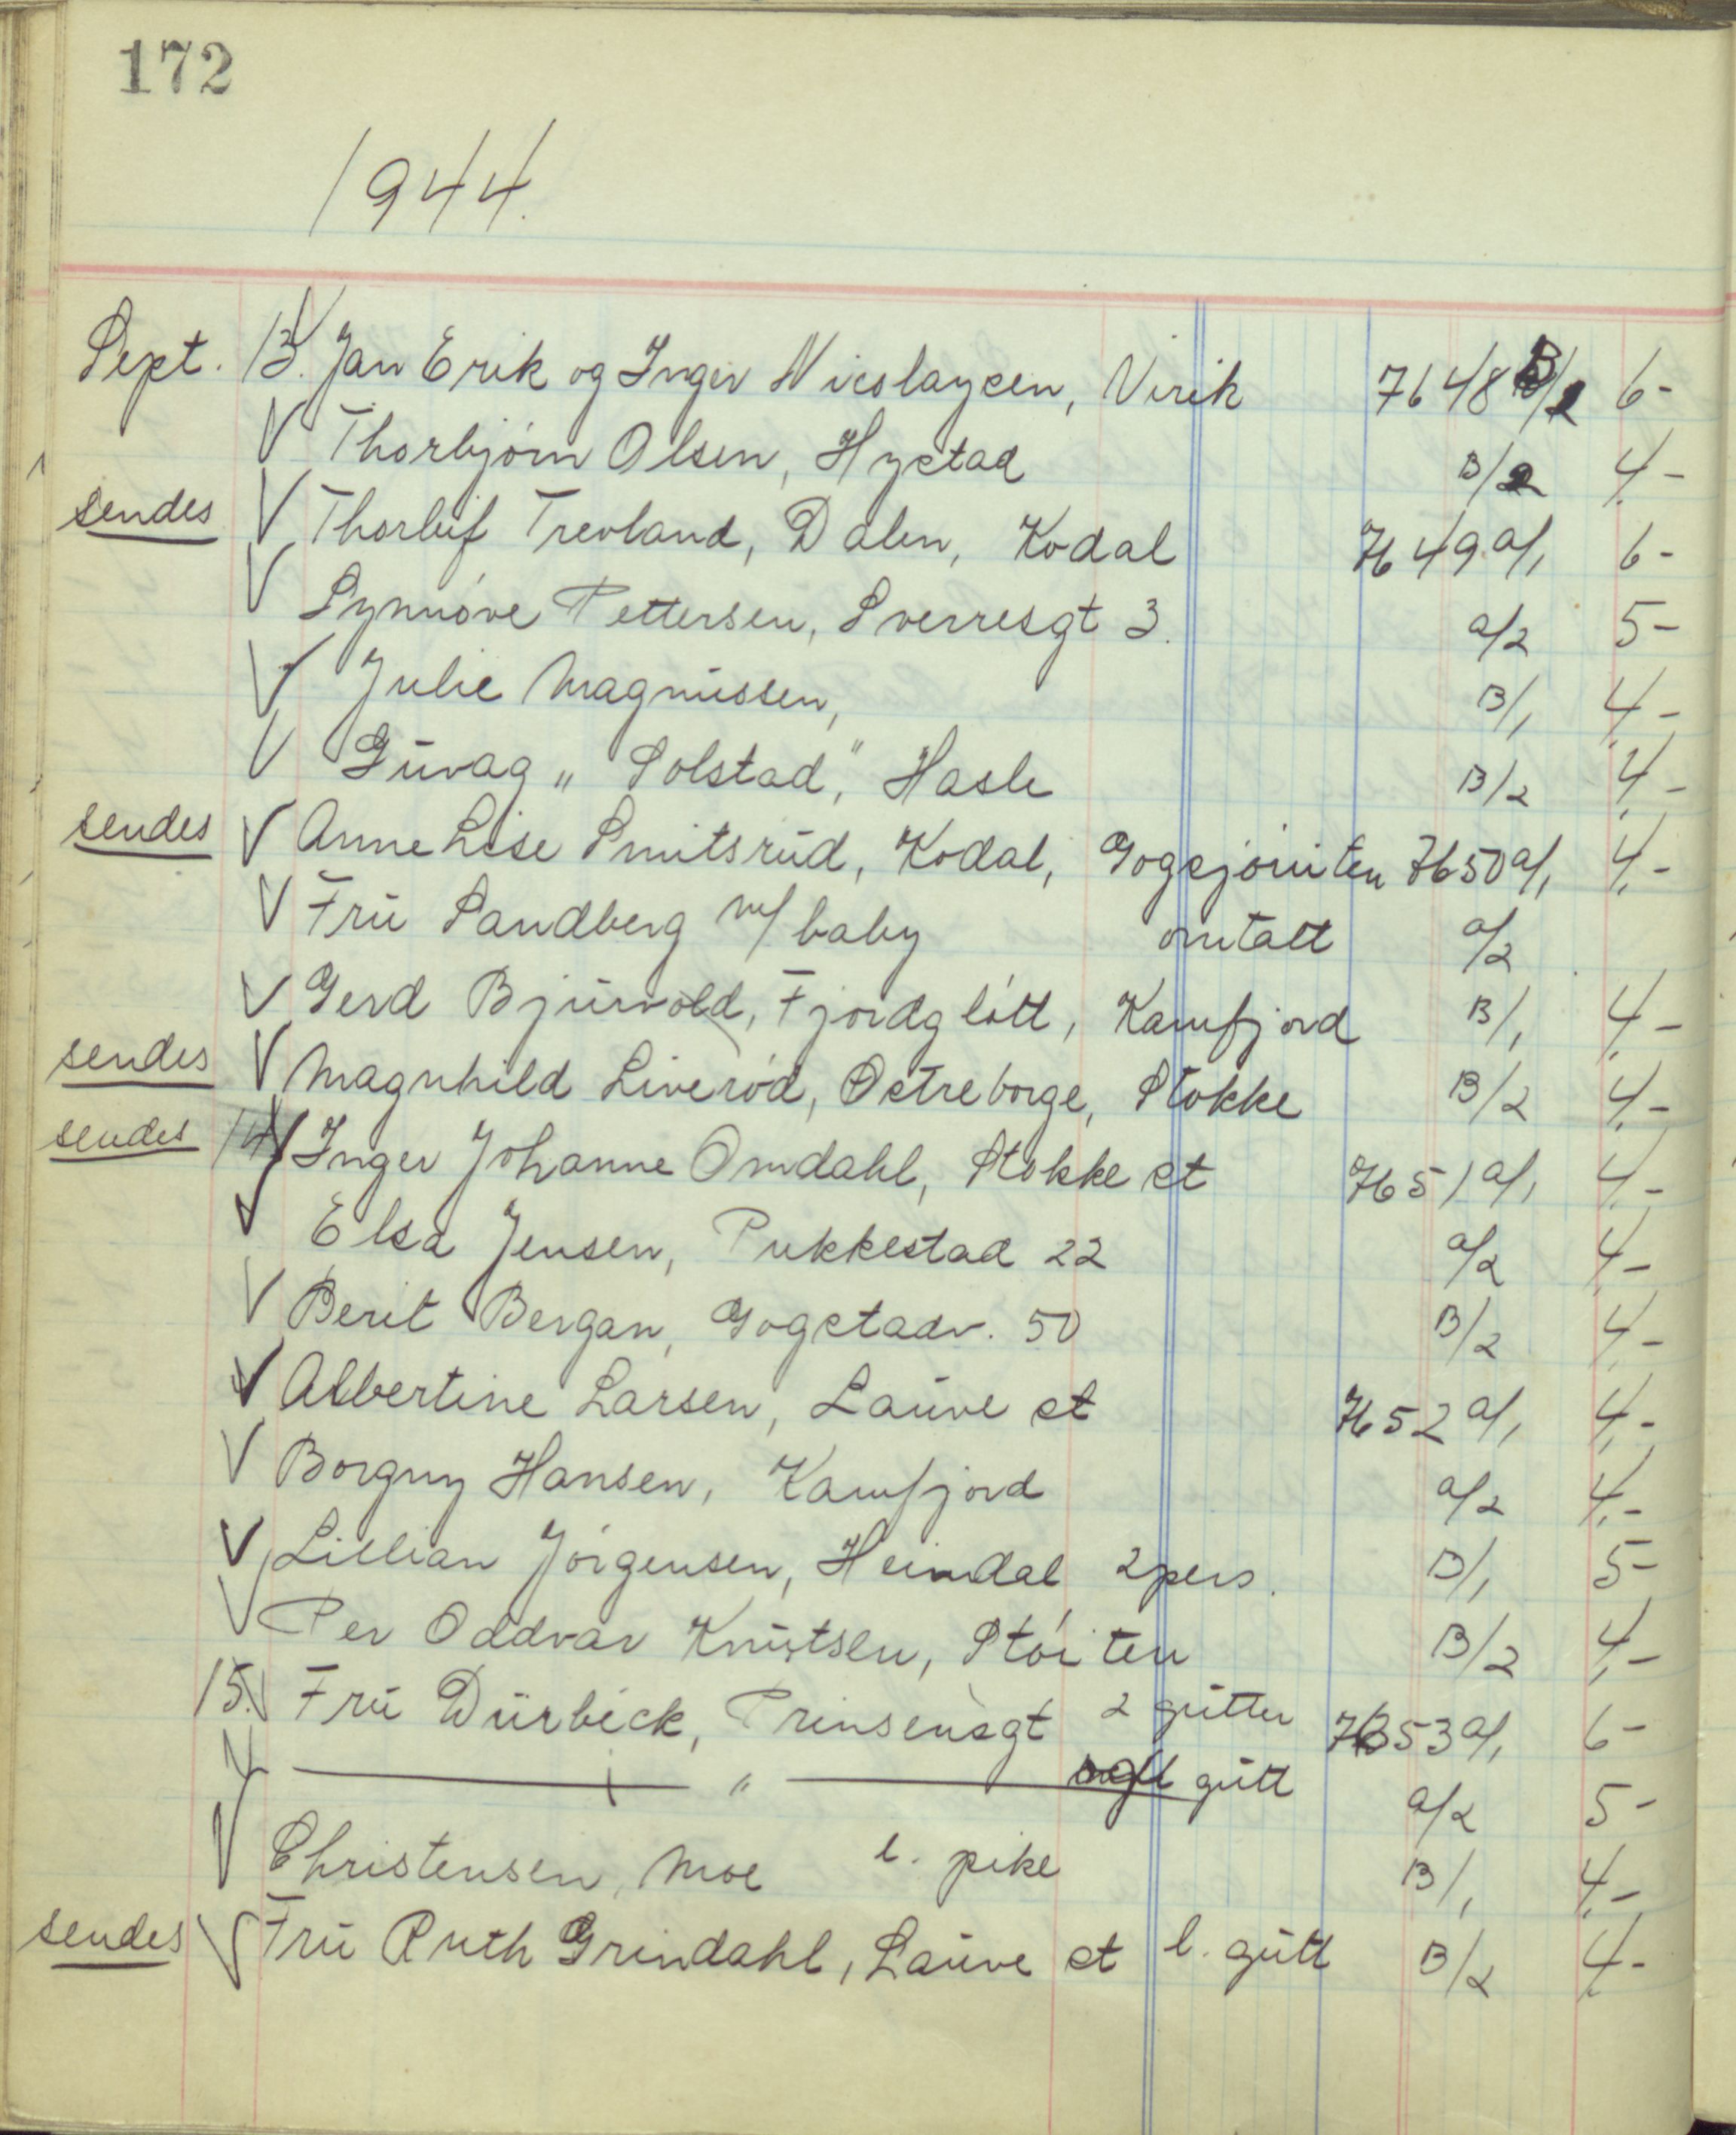 172
1944.
Sept. 13. V Jan Erik og Inger Nicolaysen, Virik 7648 B/1 6-
V Thorbjörn Olsen, Hystad B/2 4,-
sendes V Thorleif Trevland, Dalen, Kodal 7649 a/1 6-
V Synnöve Pettersen, Sverresgt 3. a/2 5-
V Julie Magnussen, B/1 4,-
V Guvag „Solstad," Hasle B/2 4,-
sendes V Anne Lise Smitsrud, Kodal, Gogsjöruten 7650 a/1 4,-
V Fru Sandberg m/ baby omtatt a/2
V Gerd Bjurvold, Fjordglött, Kamfjord B/1 4,-
sendes V Magnhild Liveröd, Östre borge, Stokke B/2 4,-
sendes 14. V Inger Johanne Omdahl, Stokke st 7651 a/1 4,-
V Elsa Jensen, Pukkestad 22 a/2 4,-
V Berit Bergan, Gogstadv. 50 B/2 4,-
V Albertine Larsen, Lauve st 7652 a/1 4,-
V Borgny Hansen, Kamfjord a/2 4,-
V Lillian Jörgensen, Heimdal 2 pers. B/1 5-
V Per Oddvar Knutsen, Stöiten B/2 4,-
15. V Fru Dürbeck, Prinsensgt 2 gutter 7653 a/1 6-
V — " — gutt a/2 5-
V Christensen, Moe l. pike B/1 4,-
sendes V Fru Ruth Grindahl, Lauve st l. gutt B/2 4,-